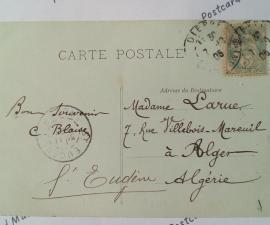 Postcard
CARTE POSTALE
Adresse du Destinataire
Bon Souvenir
C. Blaise
Madame Larue
7, Rue Villebois-Mareuil
à Alger
St Eugène Algérie